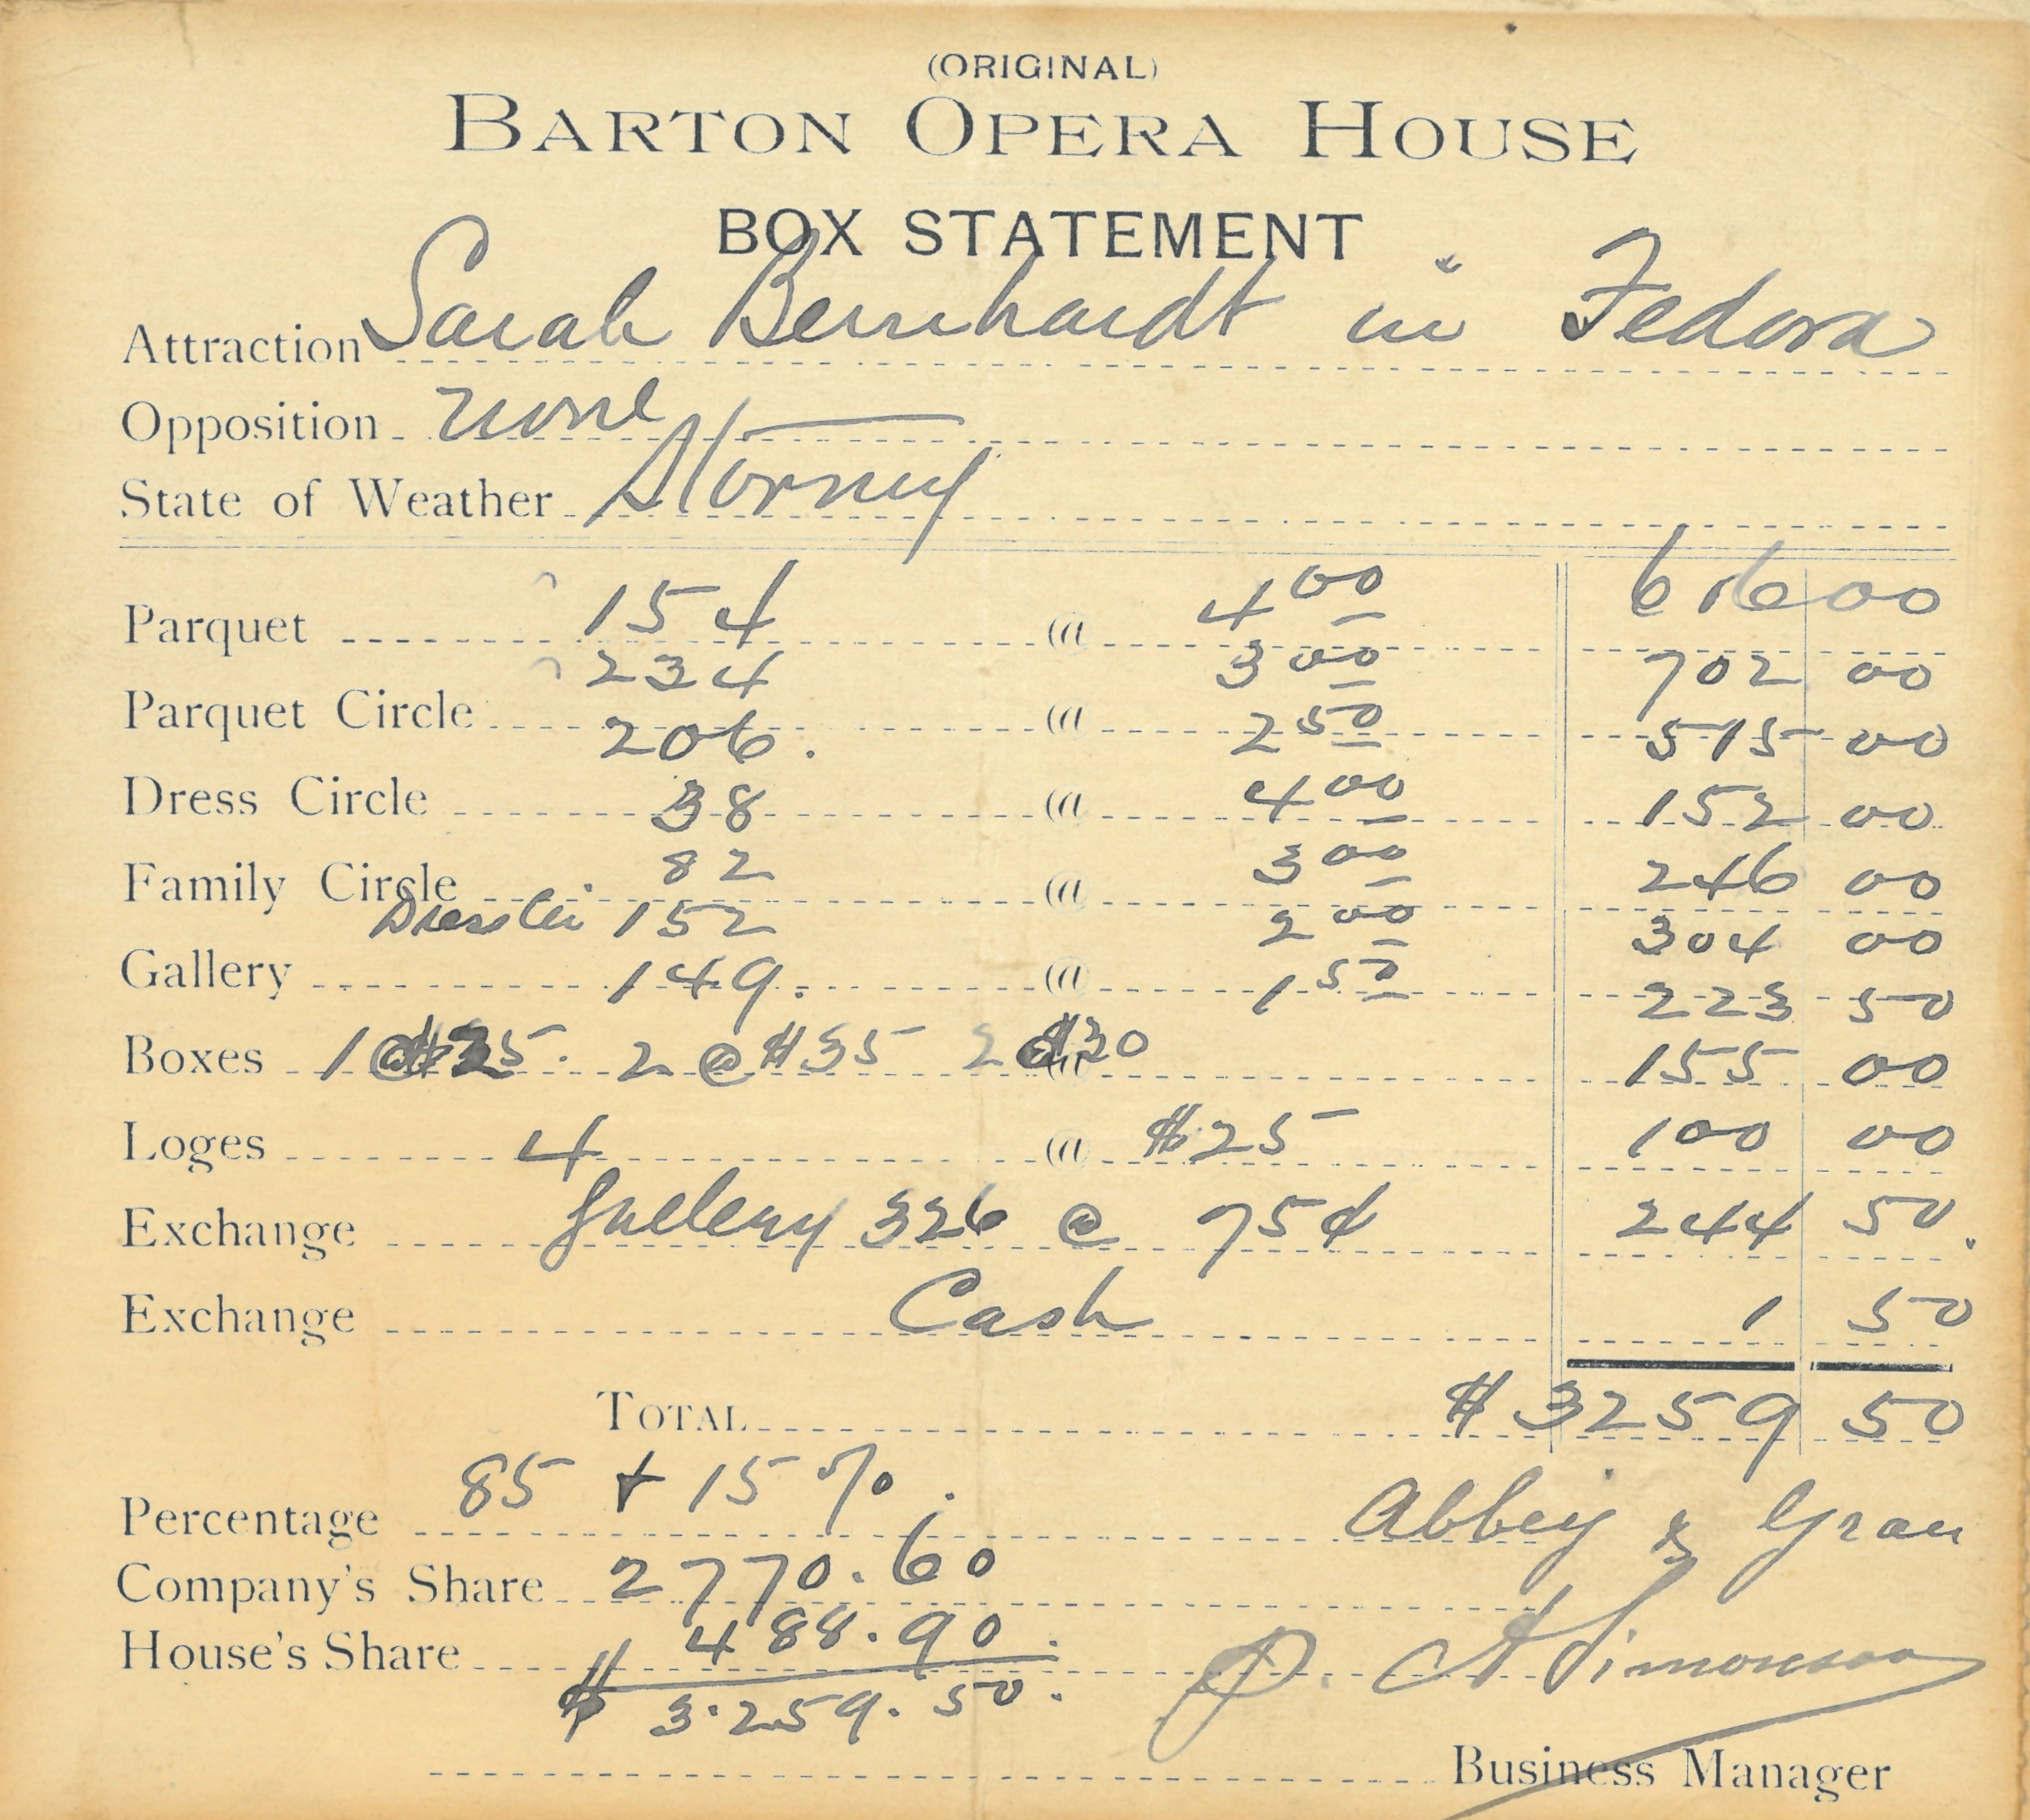 (ORIGINAL)
BARTON OPERA HOUSE
BOX STATEMENT
Attraction Sarah Bernhardt in Fedora
Opposition none
State of Weather Stormy
Parquet 154 @ 4 00 616 00
234 3 00 702 00
Parquet Circle 206. @ 2 50 515 00
Dress Circle 38 @ 4 00 152 00
82 3 00 246 00
Family Circle @
Dress Cir 152 2 00 304 00
Gallery 149. @ 1 50 223 50
Boxes 1 @ $25. 2 @ $35 2 @ $30 155 00
Loges 4 @ $25 100 00
Exchange Gallery 326 @ 75¢ 244 50.
Exchange Cash 1 50
TOTAL $3259 50
Percentage 85 + 15%. Abbey & Grau
Company's Share 2770.60
House's Share 488.90. Simonson
$ 3.259.50.
Business Manager